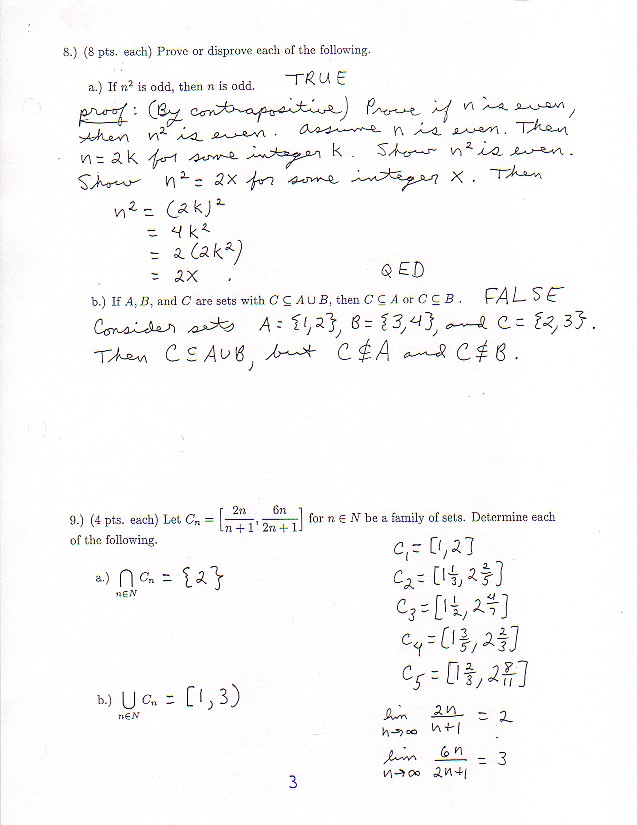 8.) (8 pts. each) Prove or disprove each of the following.
a.) If n² is odd, then n is odd. TRUE
proof: (By contrapositive) Prove if n is even,
then n² is even. Assume n is even. Then
n = 2k for some integer k. Show n² is even.
Show n² = 2x for some integer x. Then
n² = (2k)²
= 4k²
= 2(2k²)
= 2x . QED
b.) If A, B, and C are sets with C ⊆ A ∪ B, then C ⊆ A or C ⊆ B. FALSE
Consider sets A = {1,2}, B = {3,4}, and C = {2,3}.
Then C ⊆ A∪B, but C ⊈ A and C ⊈ B.
9.) (4 pts. each) Let Cₙ = [2n/(n+1), 6n/(2n+1)] for n ∈ N be a family of sets. Determine each
of the following.
a.) ⋂ n∈N Cₙ = {2}
C₁ = [1,2]
C₂ = [1 1/3, 2 2/5]
C₃ = [1 1/2, 2 4/7]
C₄ = [1 3/5, 2 2/3]
C₅ = [1 2/3, 2 8/11]
b.) ⋃ n∈N Cₙ = [1,3)
lim n→∞ 2n/(n+1) = 2
lim n→∞ 6n/(2n+1) = 3
3